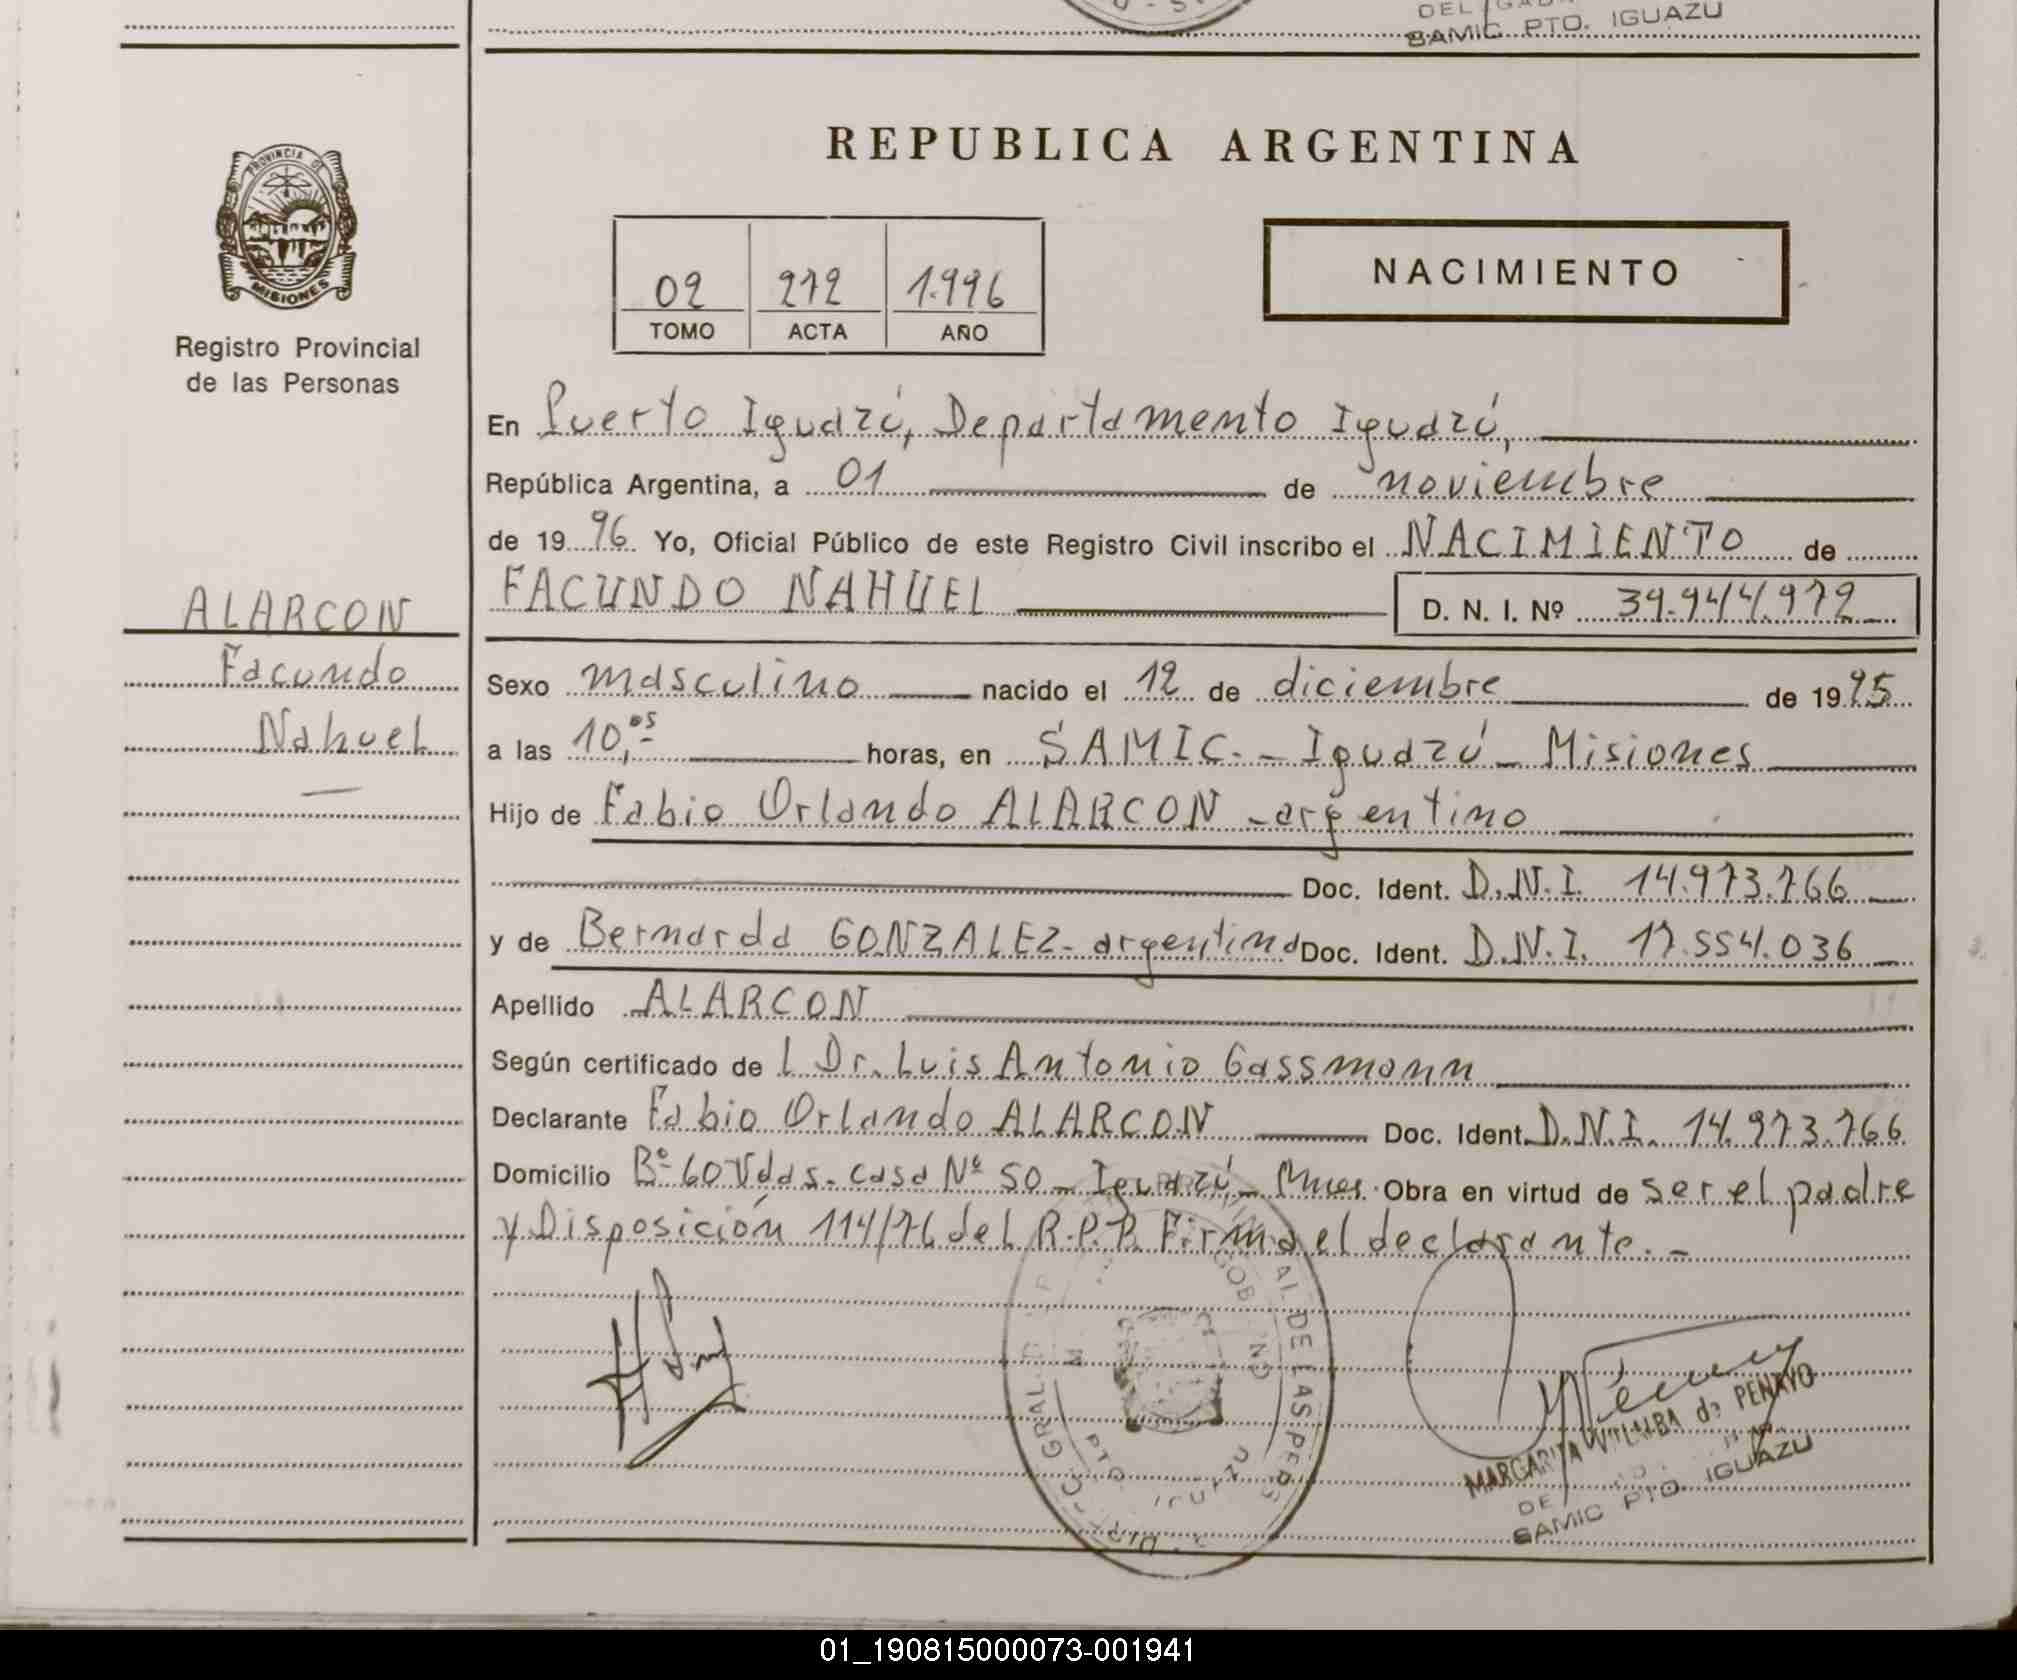 SAMIC PTO. IGUAZU
PROVINCIA DE
MISIONES
Registro Provincial
de las Personas
REPUBLICA ARGENTINA
NACIMIENTO
02 272 1.996
TOMO ACTA AÑO
En Puerto Iguazú, Departamento Iguazú,
República Argentina, a 01 de noviembre
de 1996 Yo, Oficial Público de este Registro Civil inscribo el NACIMIENTO de
FACUNDO NAHUEL D. N. I. Nº 39.944.972
ALARCON
Facundo
Nahuel
Sexo masculino nacido el 12 de diciembre de 1995
a las 10,05 horas, en SAMIC.- Iguazú - Misiones
Hijo de Fabio Orlando ALARCON - argentino
Doc. Ident. D.N.I. 14.973.766
y de Bernarda GONZALEZ - argentina Doc. Ident. D.N.I. 17.554.036
Apellido ALARCON
Según certificado de l Dr. Luis Antonio Gassmann
Declarante Fabio Orlando ALARCON Doc. Ident. D.N.I. 14.973.766
Domicilio Bº 60 Vdas. casa Nº 50 - Iguazú - Mnes. Obra en virtud de ser el padre
y Disposición 114/76 del R.P.P. Firma el declarante. -
MARGARITA VILLALBA de PENAYO
SAMIC PTO. IGUAZU
01_190815000073-001941